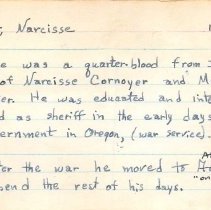 , Narcisse
e was a quarter-blood from
of Narcisse Cornoyer and M
er. He was educated and inte
d as sheriff in the early days
ernment in Oregon, (war service).
ter the war he moved to
pend the rest of his days. "on